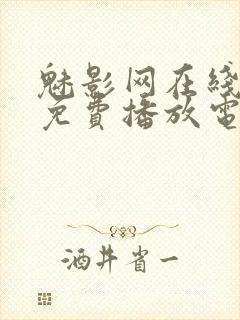 魅影网在线
免費播放電
酒井省一